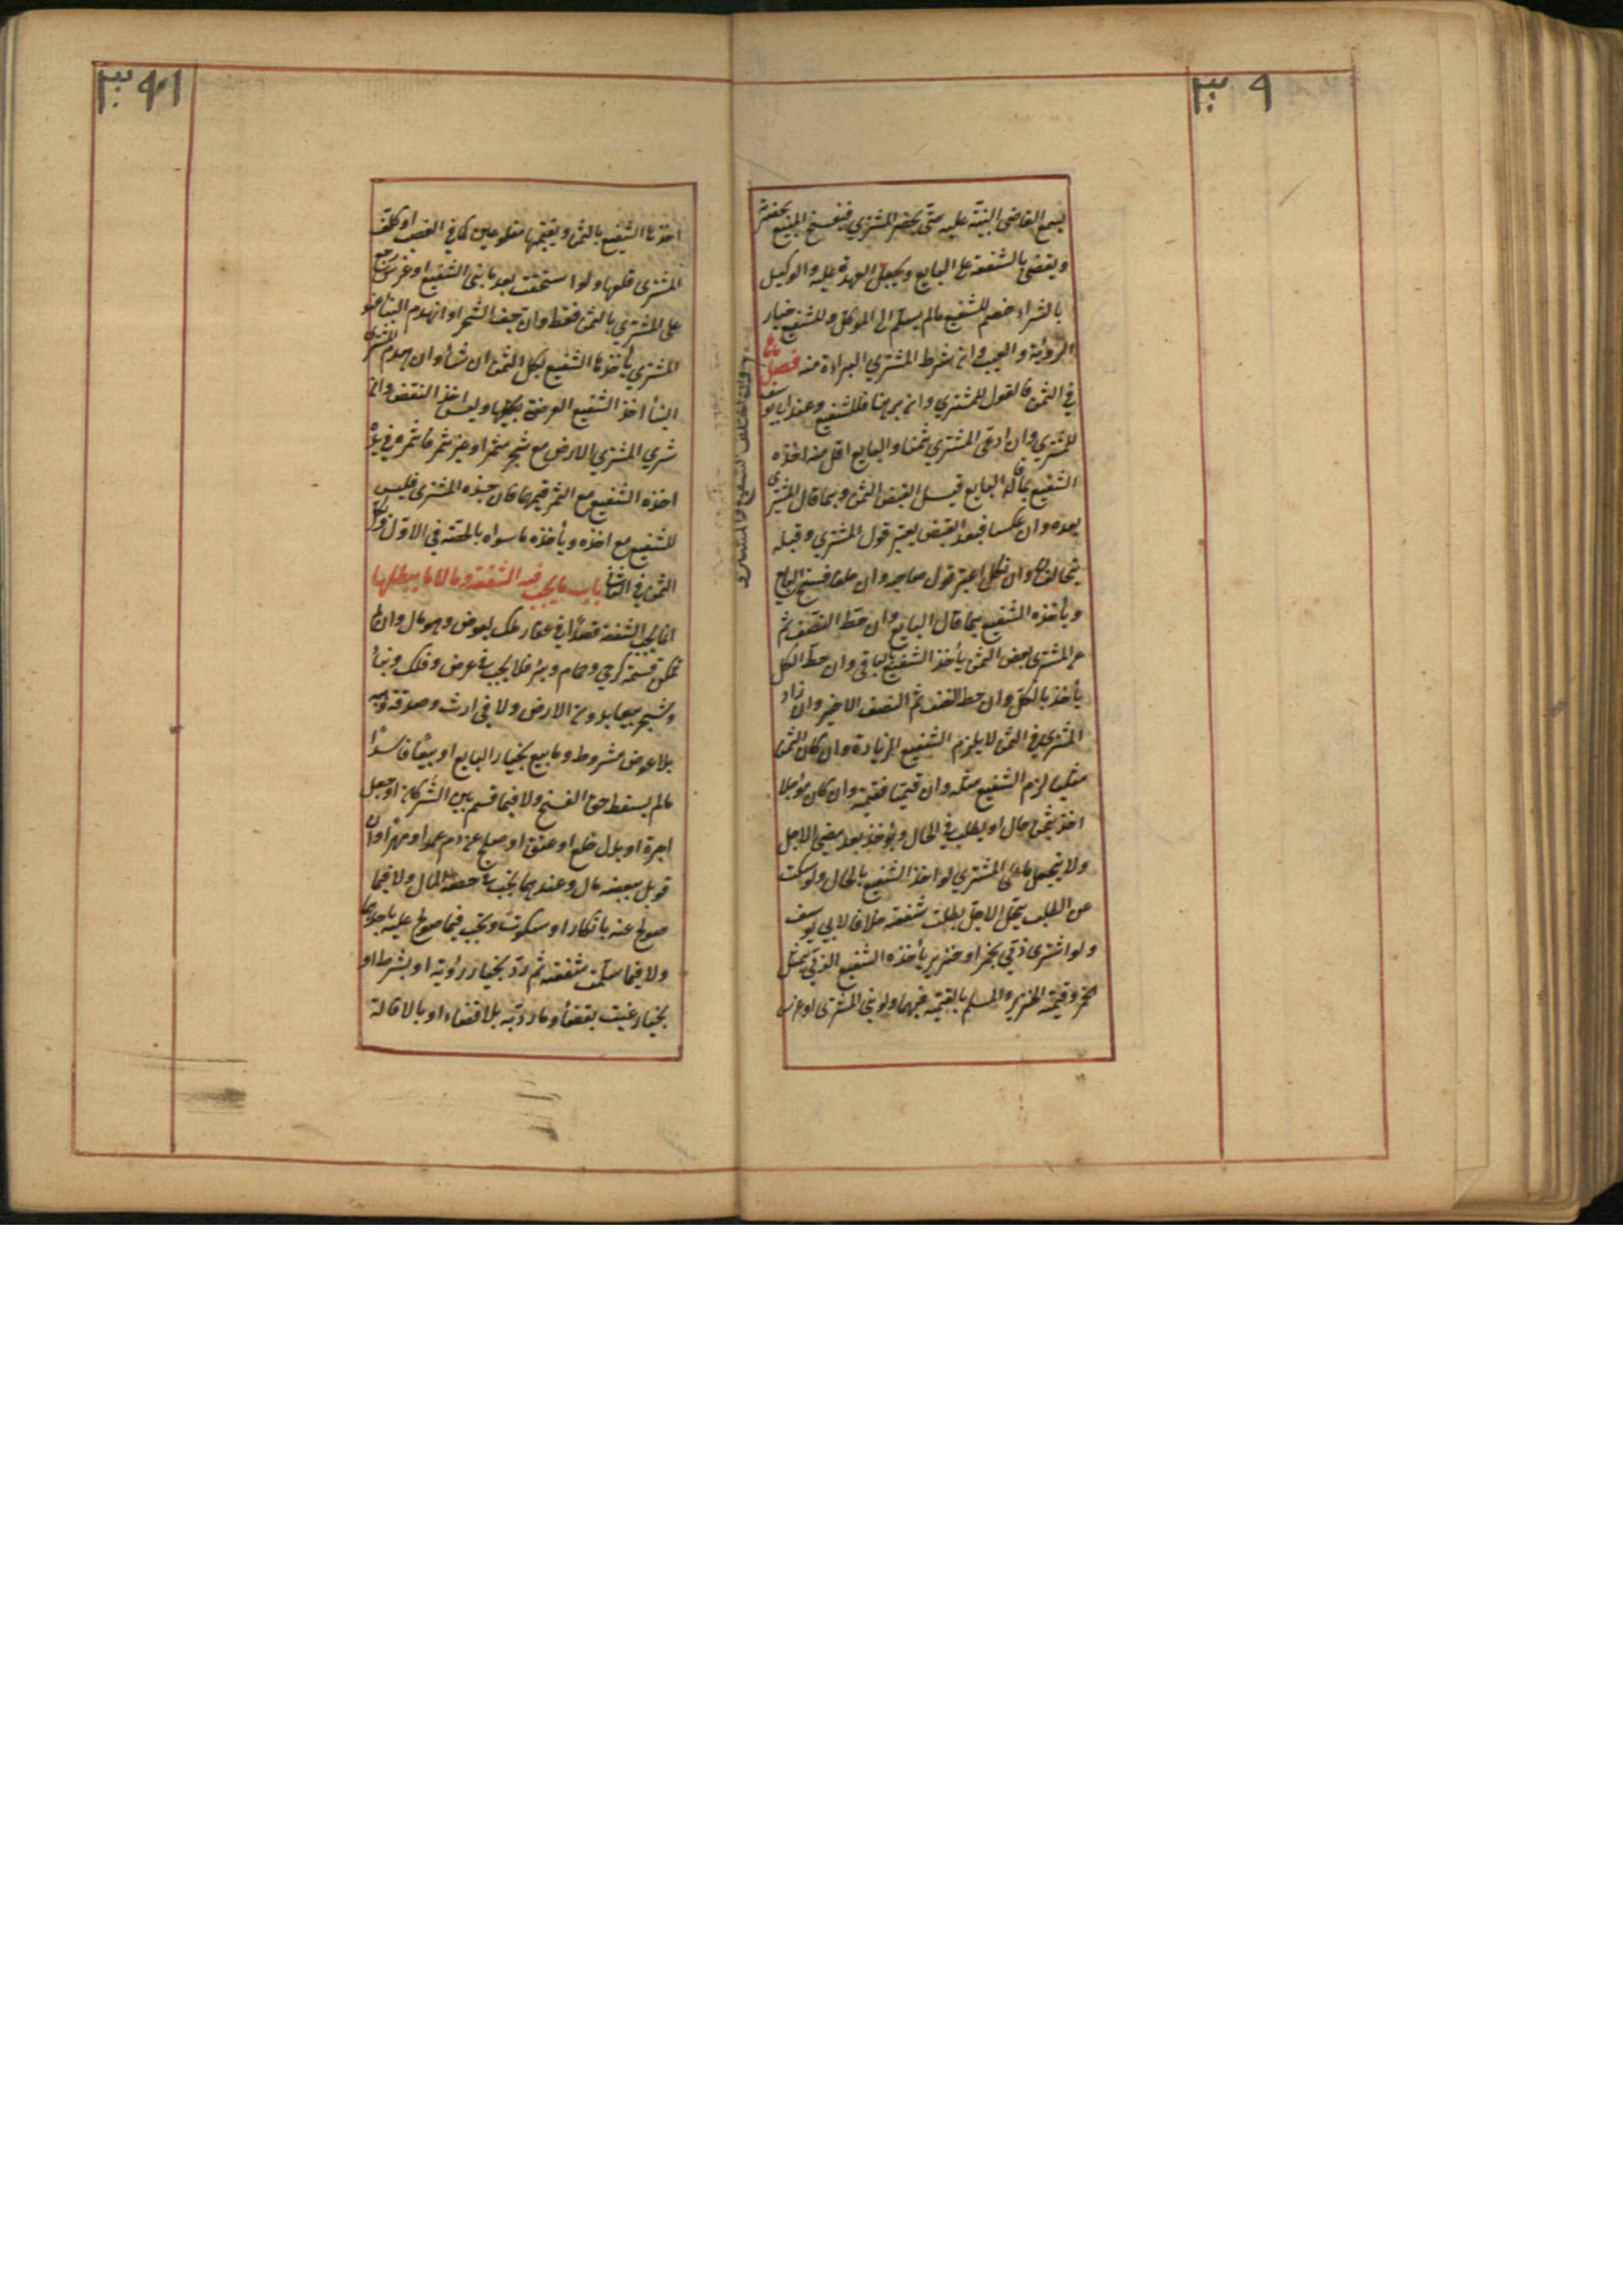 ٣٩٠
يسمع القاضي البينة عليه حتى يحضر المشتري فيفسخ البيع بحضرته
ويقضي بالشفعة على البايع ويجعل العهدة عليه والوكيل
بالشراء خصم للشفيع مالم يسلم الى الموكل وللشفيع خيار
الرؤية والعيب وان شرط المشتري البراءة منه فصل
وان اختلف الشفيع والمشتري
في الثمن فالقول للمشتري وان برهنا فللشفيع وعند ابي يوسف
للمشتري وان ادعى المشتري ثمنا والبايع اقل منه اخذه
الشفيع بما قاله البايع قبل القبض الثمن وبما قال المشتري
بعده وان عكسا فبعد القبض يعتبر قول المشتري وقبله
يتحالفان وان نكل اعتبر قول صاحبه وان حلفا فسخ البايع
ويأخذه الشفيع بما قال البايع وان حط النصف ثم
عن المشتري بعض الثمن يأخذ الشفيع بالباقي وان حط الكل
يأخذ بالكل وان حط النصف ثم النصف الاخير وان زاد
المشتري في الثمن لا يلزم الشفيع الزيادة وان كان الثمن
مثليا لزم الشفيع مثله وان قيميا فقيمته وان كان مؤجلا
اخذ بثمن حال او يطلب في الحال ويؤخذ بعد مضي الاجل
ولا يتعجل ما على المشتري لو اخذ الشفيع بالحال ولو سكت
عن الطلب ليحل الاجل بطلت شفعته خلافا لابي يوسف
ولو اشترى ذمي بخمر او خنزير يأخذه الشفيع الذمي بمثل
الخمر وقيمة الخنزير والمسلم بالقيمة فيهما ولو بنى المشتري او غرس
٣٩١
اخذها الشفيع بالثمن وبقيمتهما مقلوعين كما في الغصب او كلف
المشتري قلعها ولو استحقت بعد ما بنى الشفيع او غرس رجع
على المشتري بالثمن فقط وان جف الشجر او انهدم البناء عند
المشتري يأخذها الشفيع بكل الثمن ان شاء وان هدم المشتري
البناء اخذ الشفيع العرصة بحصتها وليس اخذ النقض وان
شرى المشتري الارض مع شجر مثمر او غير مثمر فاثمر في يده
اخذه الشفيع مع الثمر فيهما فان جذه المشتري فليس
للشفيع مع اخذه ويأخذه ما سواه بالحصة في الاول وبكل
الثمن في الثاني باب ما يجب فيه الشفعة وما لا وما يبطلها
انما تجب الشفعة قصدا في عقار ملك بعوض وهو مال وان لم
تمكن قسمته كرحى وحمام وبئر فلا تجب في عرض وفلك وبناء
وشجر بيعا بدون الارض ولا في ارث وصدقة وهبة
بلا عوض مشروط وما بيع بخيار البايع او بيعا فاسدا
مالم يسقط حق الفسخ ولا فيما قسم بين الشركاء او جعل
اجرة او بدل خلع او عتق او صلح عن دم عمد او مهر او ان
قوبل ببعضه مال وعندهما تجب في حصة المال ولا فيما
صولح عنه بانكار او سكوت وتجب فيما صولح عليه باحدهما
ولا فيما سلمت شفعته ثم رد بخيار رؤية او بشرط او
بخيار عيب بقضاء وما رد به بلا قضاء او بالاقالة